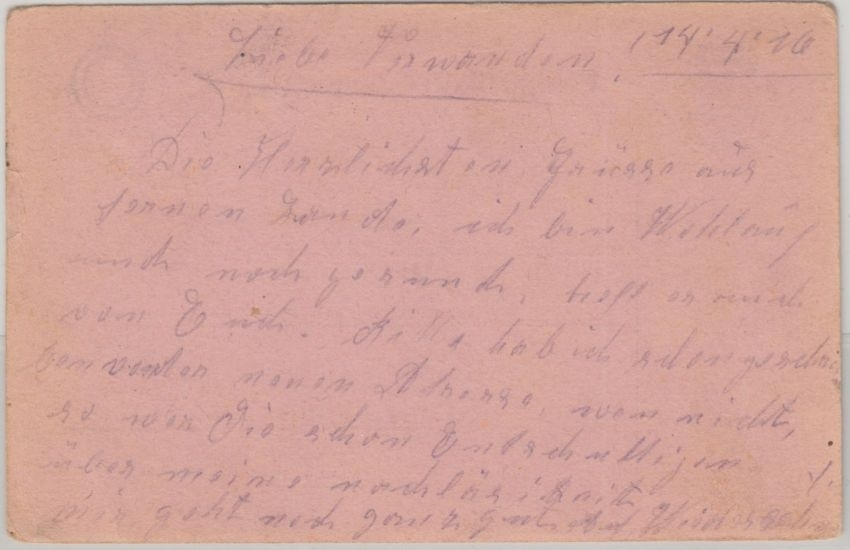 Liebe Verwanden! 14.4.16
Die Herzlichsten Grüsse aus
fernen Lande, ich bin Wohlauf
und noch gesund, hoff es auch
von Euch. hab ich schon geschri
ben von der neuen Adresse, wen nicht,
so wer Sie schon Entschultigen
über meine nachläsikeit
mir geht noch ganz gut